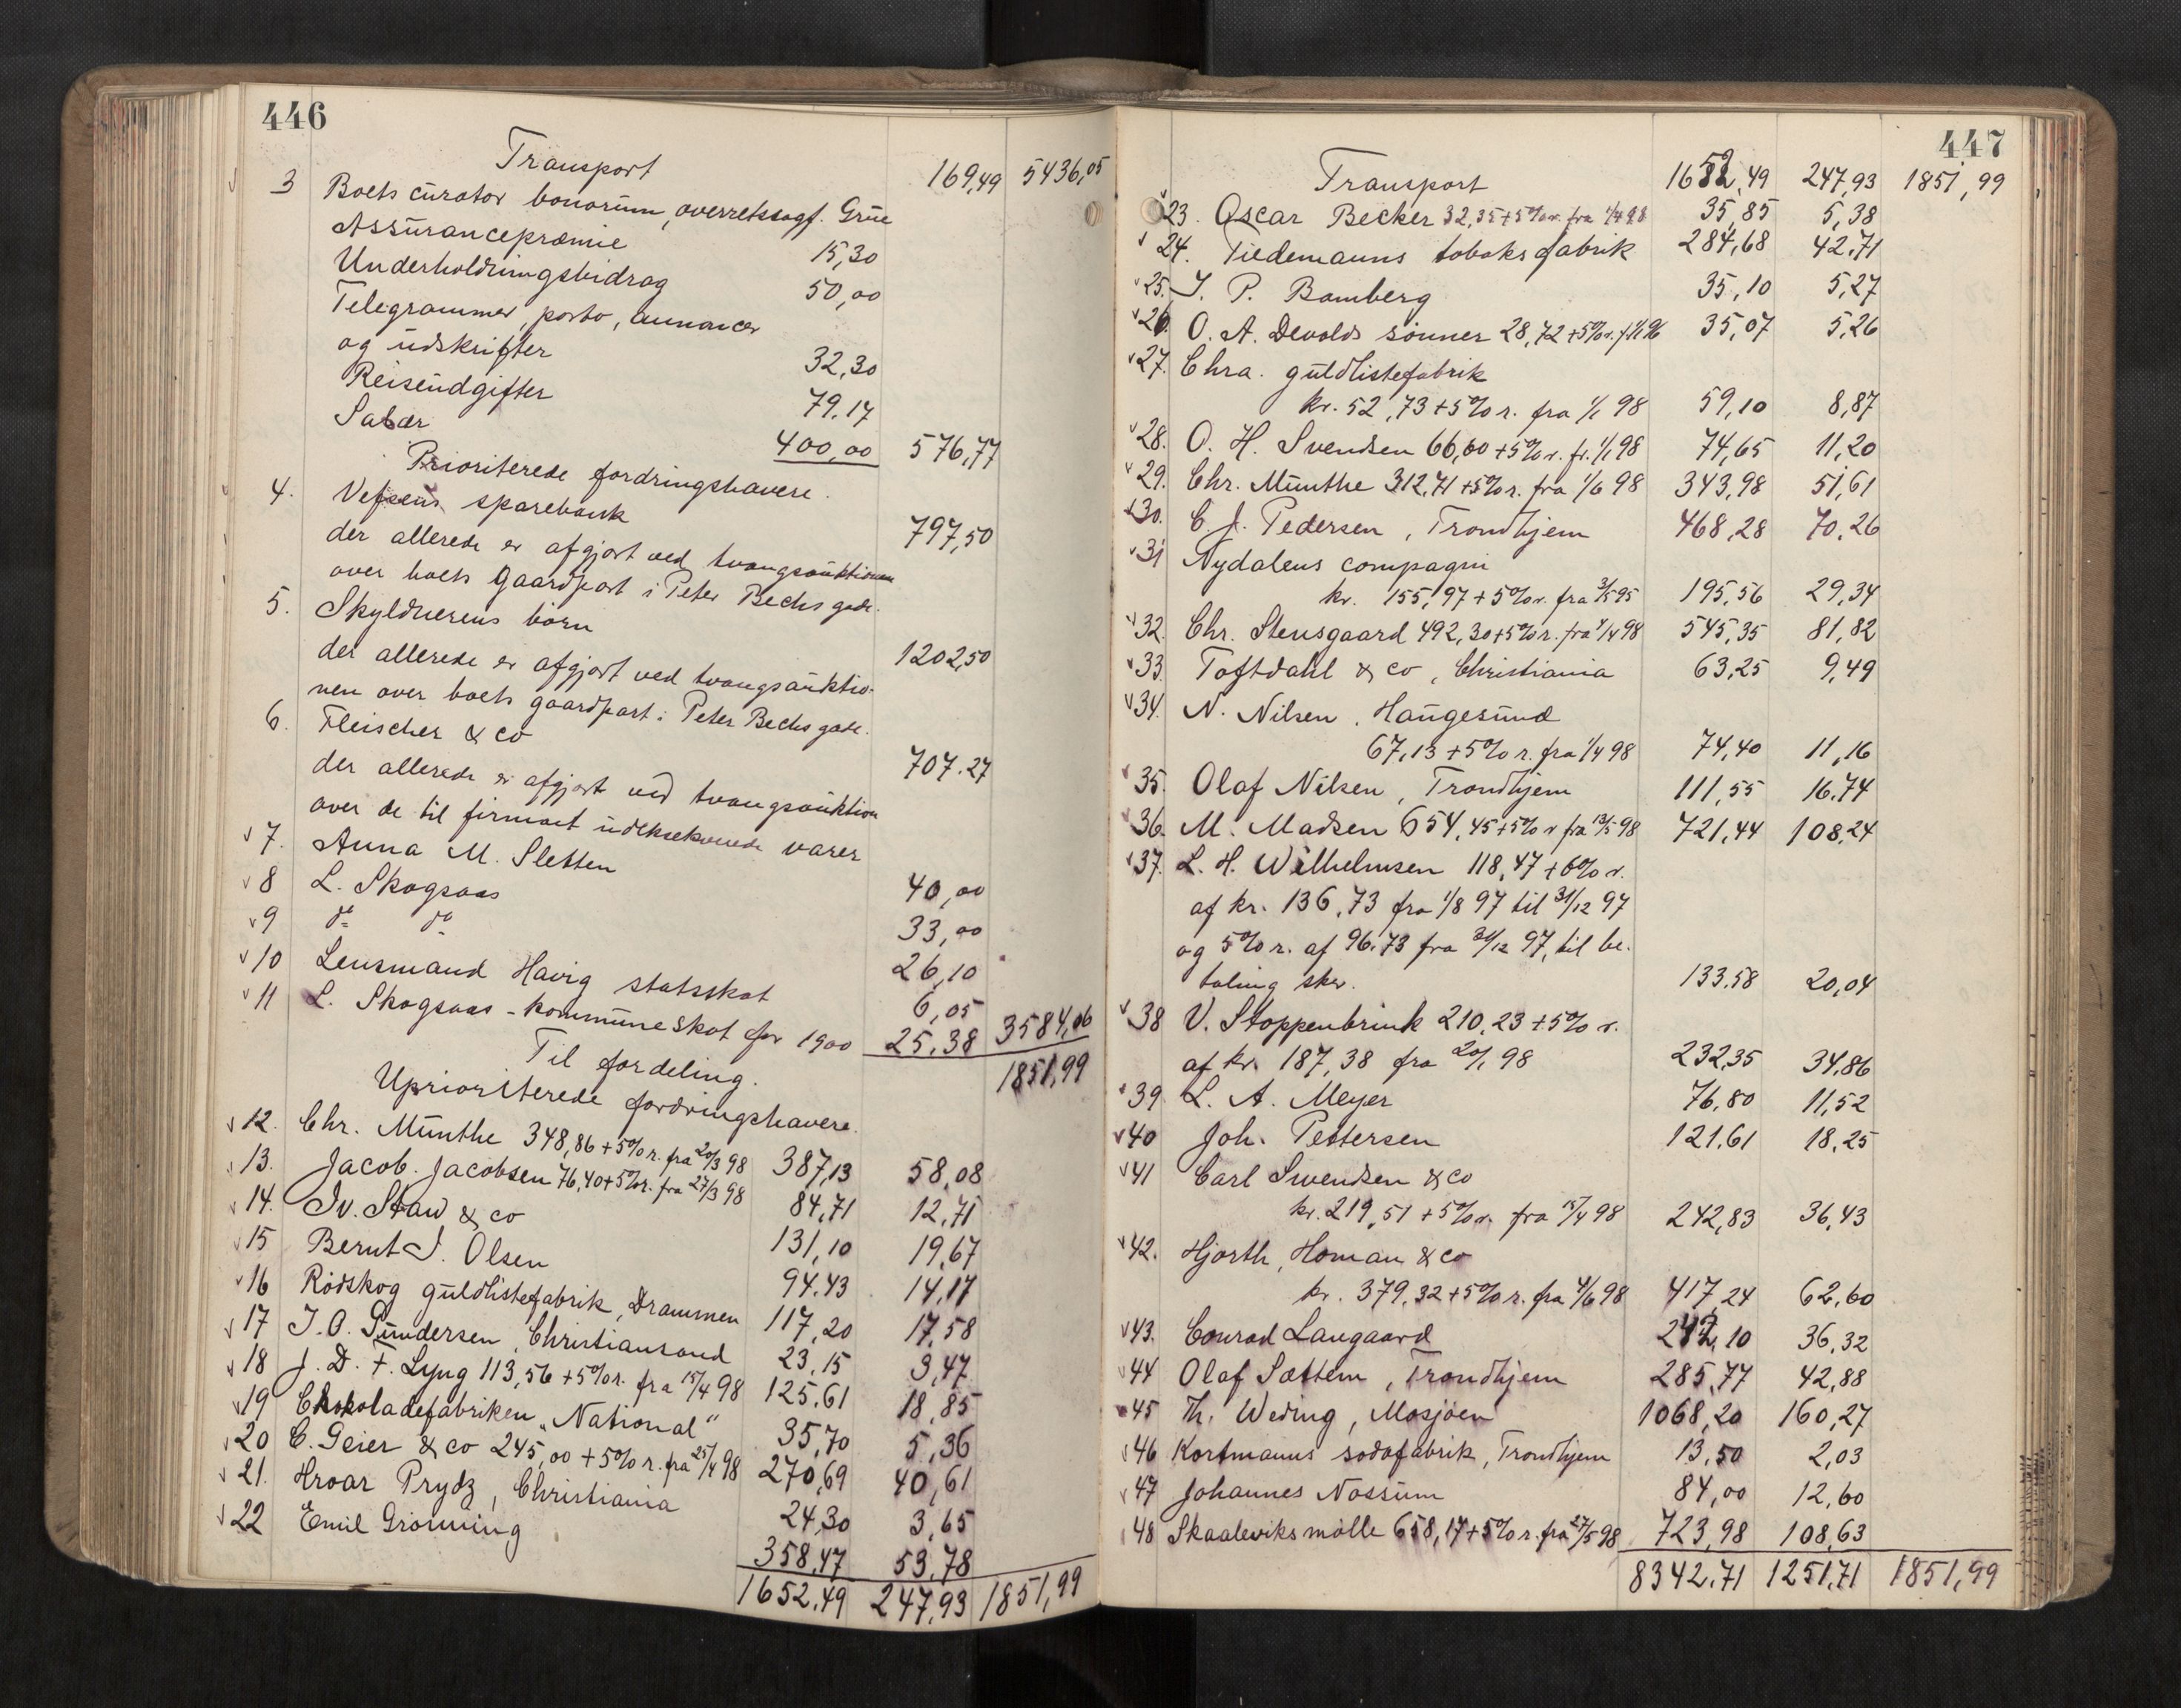 446
Transport 169,49 5436,05
3 Boets curator bonorum, overretssagf. Grüe
Assürancepræmie 15,30
Underholdningsbidrag 50,00
Telegrammer, porto, annoncer
og üdskrifter 32,30
Reiseüdgifter 79,17
Salær 400,00 576,77
Prioriterede fordringshavere.
4. Vefsens sparebank 797,50
der allerede er afgjort ved tvangsauktionen
over boets gaardpart i Peter Bechs gade.
5. Skyldnerens börn 1202,50
der allerede er afgjort ved tvangsauktio-
nen over boets gaardpart i Peter Bechs gade.
6. Fleischer & co 707.27
der allerede er afgjort ved tvangsauktion
over de til firmaet udeksekverede varer
v 7. Anna M. Sletten 40,00
v 8 L. Skogsaas 33,00
v 9 do do 26,10
v 10 Lensmand Havig statsskat 6,05
v 11 L. Skogsaas - kommüneskat for 1900 25,38 3584,06
Til fordeling. 1851,99
Uprioriterede fordringshavere.
v 12. Chr. Münthe 348,86 + 5% r. fra 20/3 98 387,13 58,08
v 13. Jacob Jacobsen 76,40 + 5% r. fra 27/3 98 84,71 12,71
v 14. Iv. Staw & co 131,10 19,67
v 15 Bernt J. Olsen 94.43 14,17
v 16 Rödskog güldlistefabrik, Drammen 117,20 17,58
v 17 J. O. Gundersen, Christiansand 23,15 3,47
v 18 J. D. F. Lyng 113,56 + 5% r. fra 15/4 98 125,61 18,85
v 19 Chokoladefabriken "National" 35,70 5,36
v 20 C. Geier & co 245,00 + 5% r. fra 25/4 98 270,69 40,61
v 21. Hroar Prydz, Christiania 24,30 3,65
v 22 Emil Grönning 358,47 53,78
1652,49 247,93 1851,99
447
Transport 1652,49 247,93 1851,99
v 23. Oscar Becker 32,35 + 5% r. fra 1/4 98 35,85 5,38
v 24. Tiedemanns tobaksfabrik 284,68 42,71
v 25. J. P. Bamberg 35,10 5,27
v 26. O. A. Devolds sönner 28,72 + 5% r. f. 1/1 96 35,07 5,26
v 27. Chra. güldlistefabrik
kr. 52,73 + 5% r. fra 1/1 98 59,10 8,87
v 28. O. H. Svendsen 66,60 + 5% r. fr. 1/1 98 74,65 11,20
v 29. Chr. Münthe 312,71 + 5% r. fra 1/6 98 343,98 51,61
v 30. C. J. Pedersen, Trondhjem 468,28 70,26
v 31 Nydalens compagni
kr. 155,97 + 5% r. fra 3/5 95 195,56 29,34
v 32. Chr. Stensgaard 492,30 + 5% r. fra 4/4 98 545,35 81,82
v 33. Toftdahl & co, Christiania 63,25 9,49
v 34. N. Nilsen, Haugesünd
67,13 + 5% r. fra 1/4 98 74,40 11,16
v 35. Olaf Nilsen, Trondhjem 111,55 16,74
v 36. M. Madsen 654,45 + 5% r fra 13/5 98 721,44 108,24
v 37. L. H. Wilhelmsen 118,47 + 6% r.
af kr. 136,73 fra 1/8 97 til 31/12 97
og 5% r. af 96,73 fra 31/12 97, til be-
taling sker. 133,58 20,04
v 38 V. Stoppenbrink 210,23 + 5% r.
af kr. 187,38 fra 20/1 98 232,35 34,86
v 39. L. A. Meyer 76,80 11,52
v 40 Joh. Pettersen 121,61 18,25
v 41 Carl Swendsen & co
kr. 219,51 + 5% r. fra 15/4 98 242,83 36,43
v 42. Hjorth, Homan & co
kr. 379,32 + 5% r. fra 4/6 98 417,24 62,60
v 43. Conrad Langaard 242,10 36,32
v 44 Olaf Sættem, Trondhjem 285,77 42,88
v 45 Th. Weding, Mosjöen 1068,20 160,27
v 46 Kortmanns sodafabrik, Trondhjem 13,50 2,03
v 47 Johannes Nossüm 84,00 12,60
48 Skaaleviks mölle 658,17 + 5% r. fra 27/5 98 723,98 108,63
8342.71 1251,71 1851,99